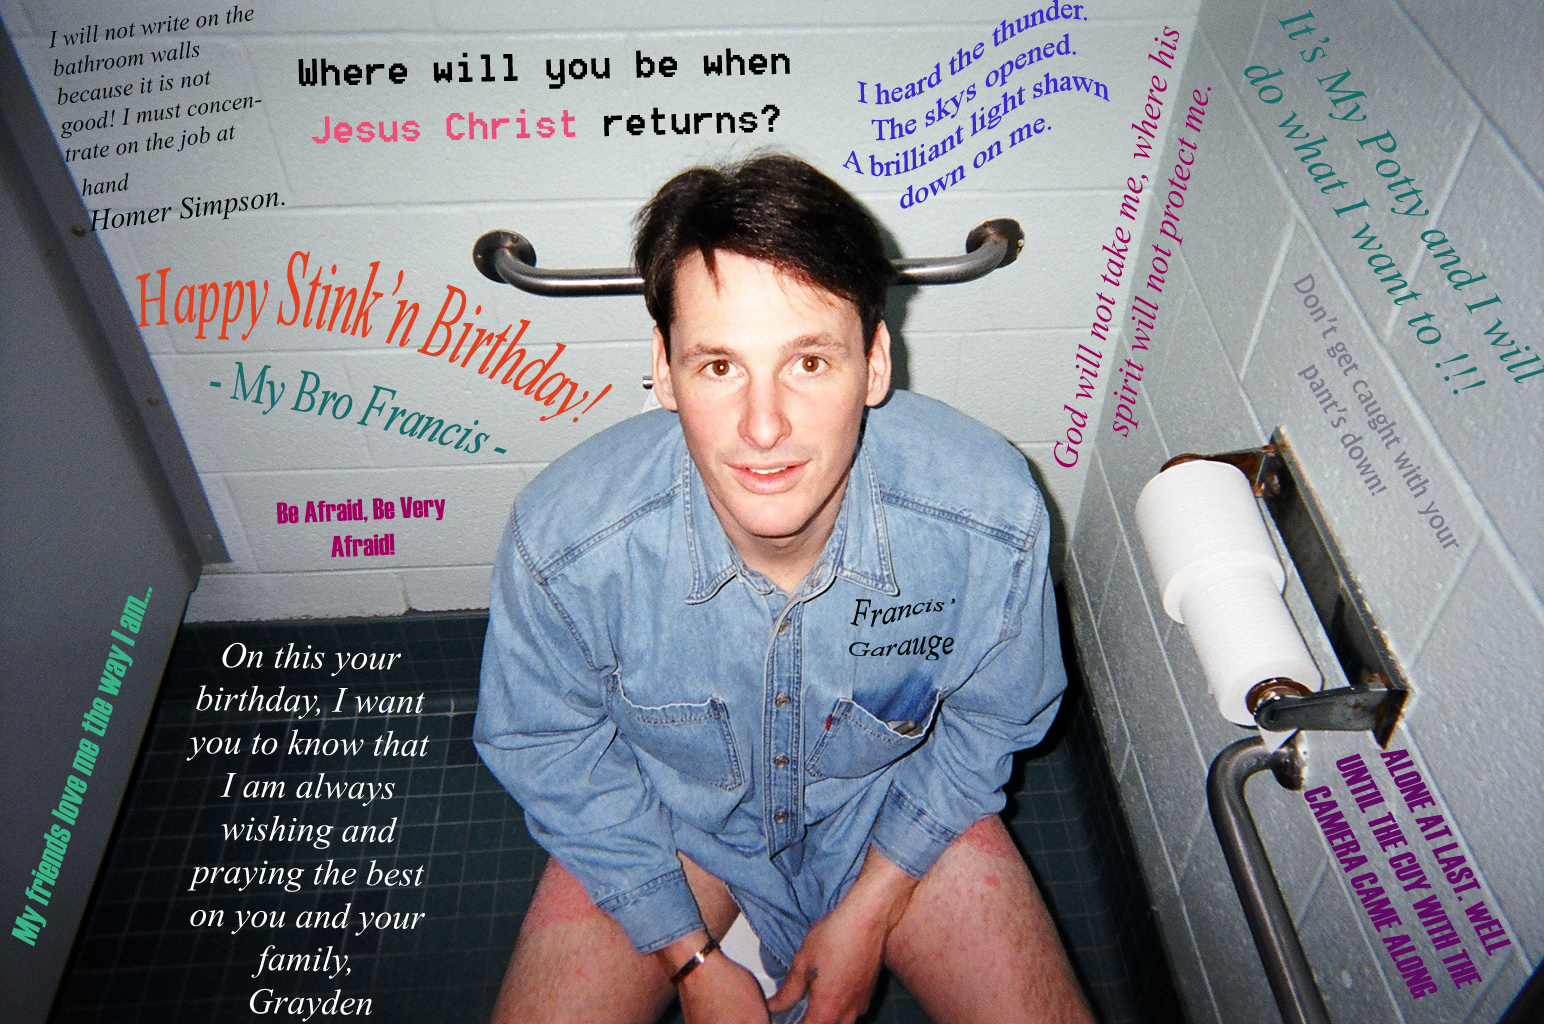 I will not write on the
bathroom walls
because it is not
good! I must concen-
trate on the job at
hand
Homer Simpson.
Where will you be when
Jesus Christ returns?
I heard the thunder.
The skys opened.
A brilliant light shawn
down on me.
God will not take me, where his
spirit will not protect me.
It's My Potty and I will
do what I want to !!!
Don't get caught with your
pant's down!
Happy Stink'n Birthday!
- My Bro Francis -
Be Afraid, Be Very
Afraid!
My friends love me the way I am...
On this your
birthday, I want
you to know that
I am always
wishing and
praying the best
on you and your
family,
Grayden
Francis'
Garauge
ALONE AT LAST. WELL
UNTIL THE GUY WITH THE
CAMERA CAME ALONG